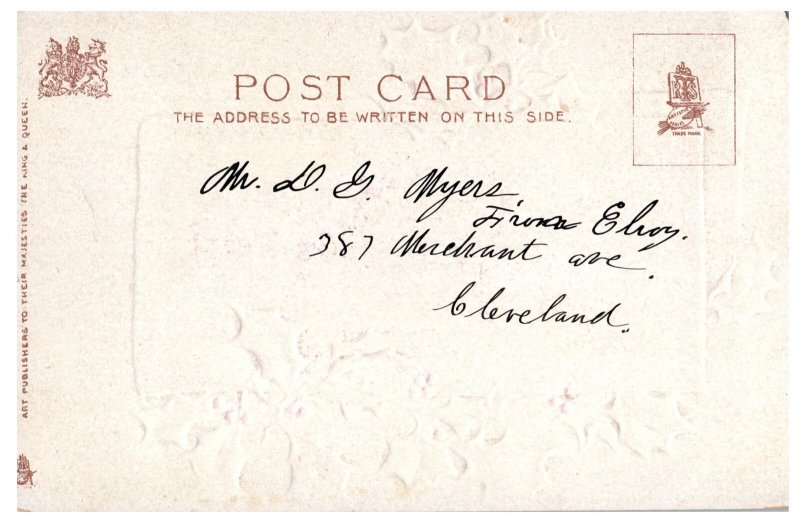 POST CARD
THE ADDRESS TO BE WRITTEN ON THIS SIDE.
Mr. D. G. Myers
From Elroy.
387 Merchant ave.
Cleveland.
ART PUBLISHERS TO THEIR MAJESTIES THE KING & QUEEN.
TRADE MARK